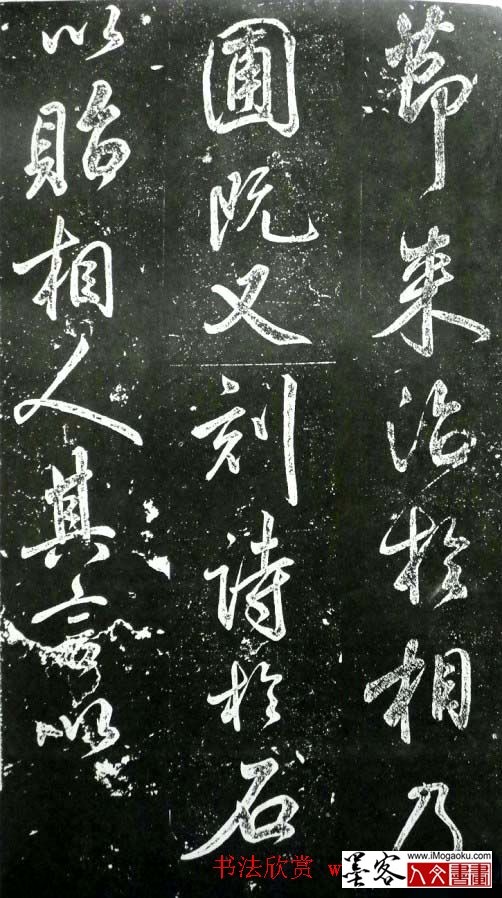 節来治於相乃
圃既又刻詩於石
以貽相人其言以
书法欣赏 w
墨客
www.iMogaoku.com
人文書畫